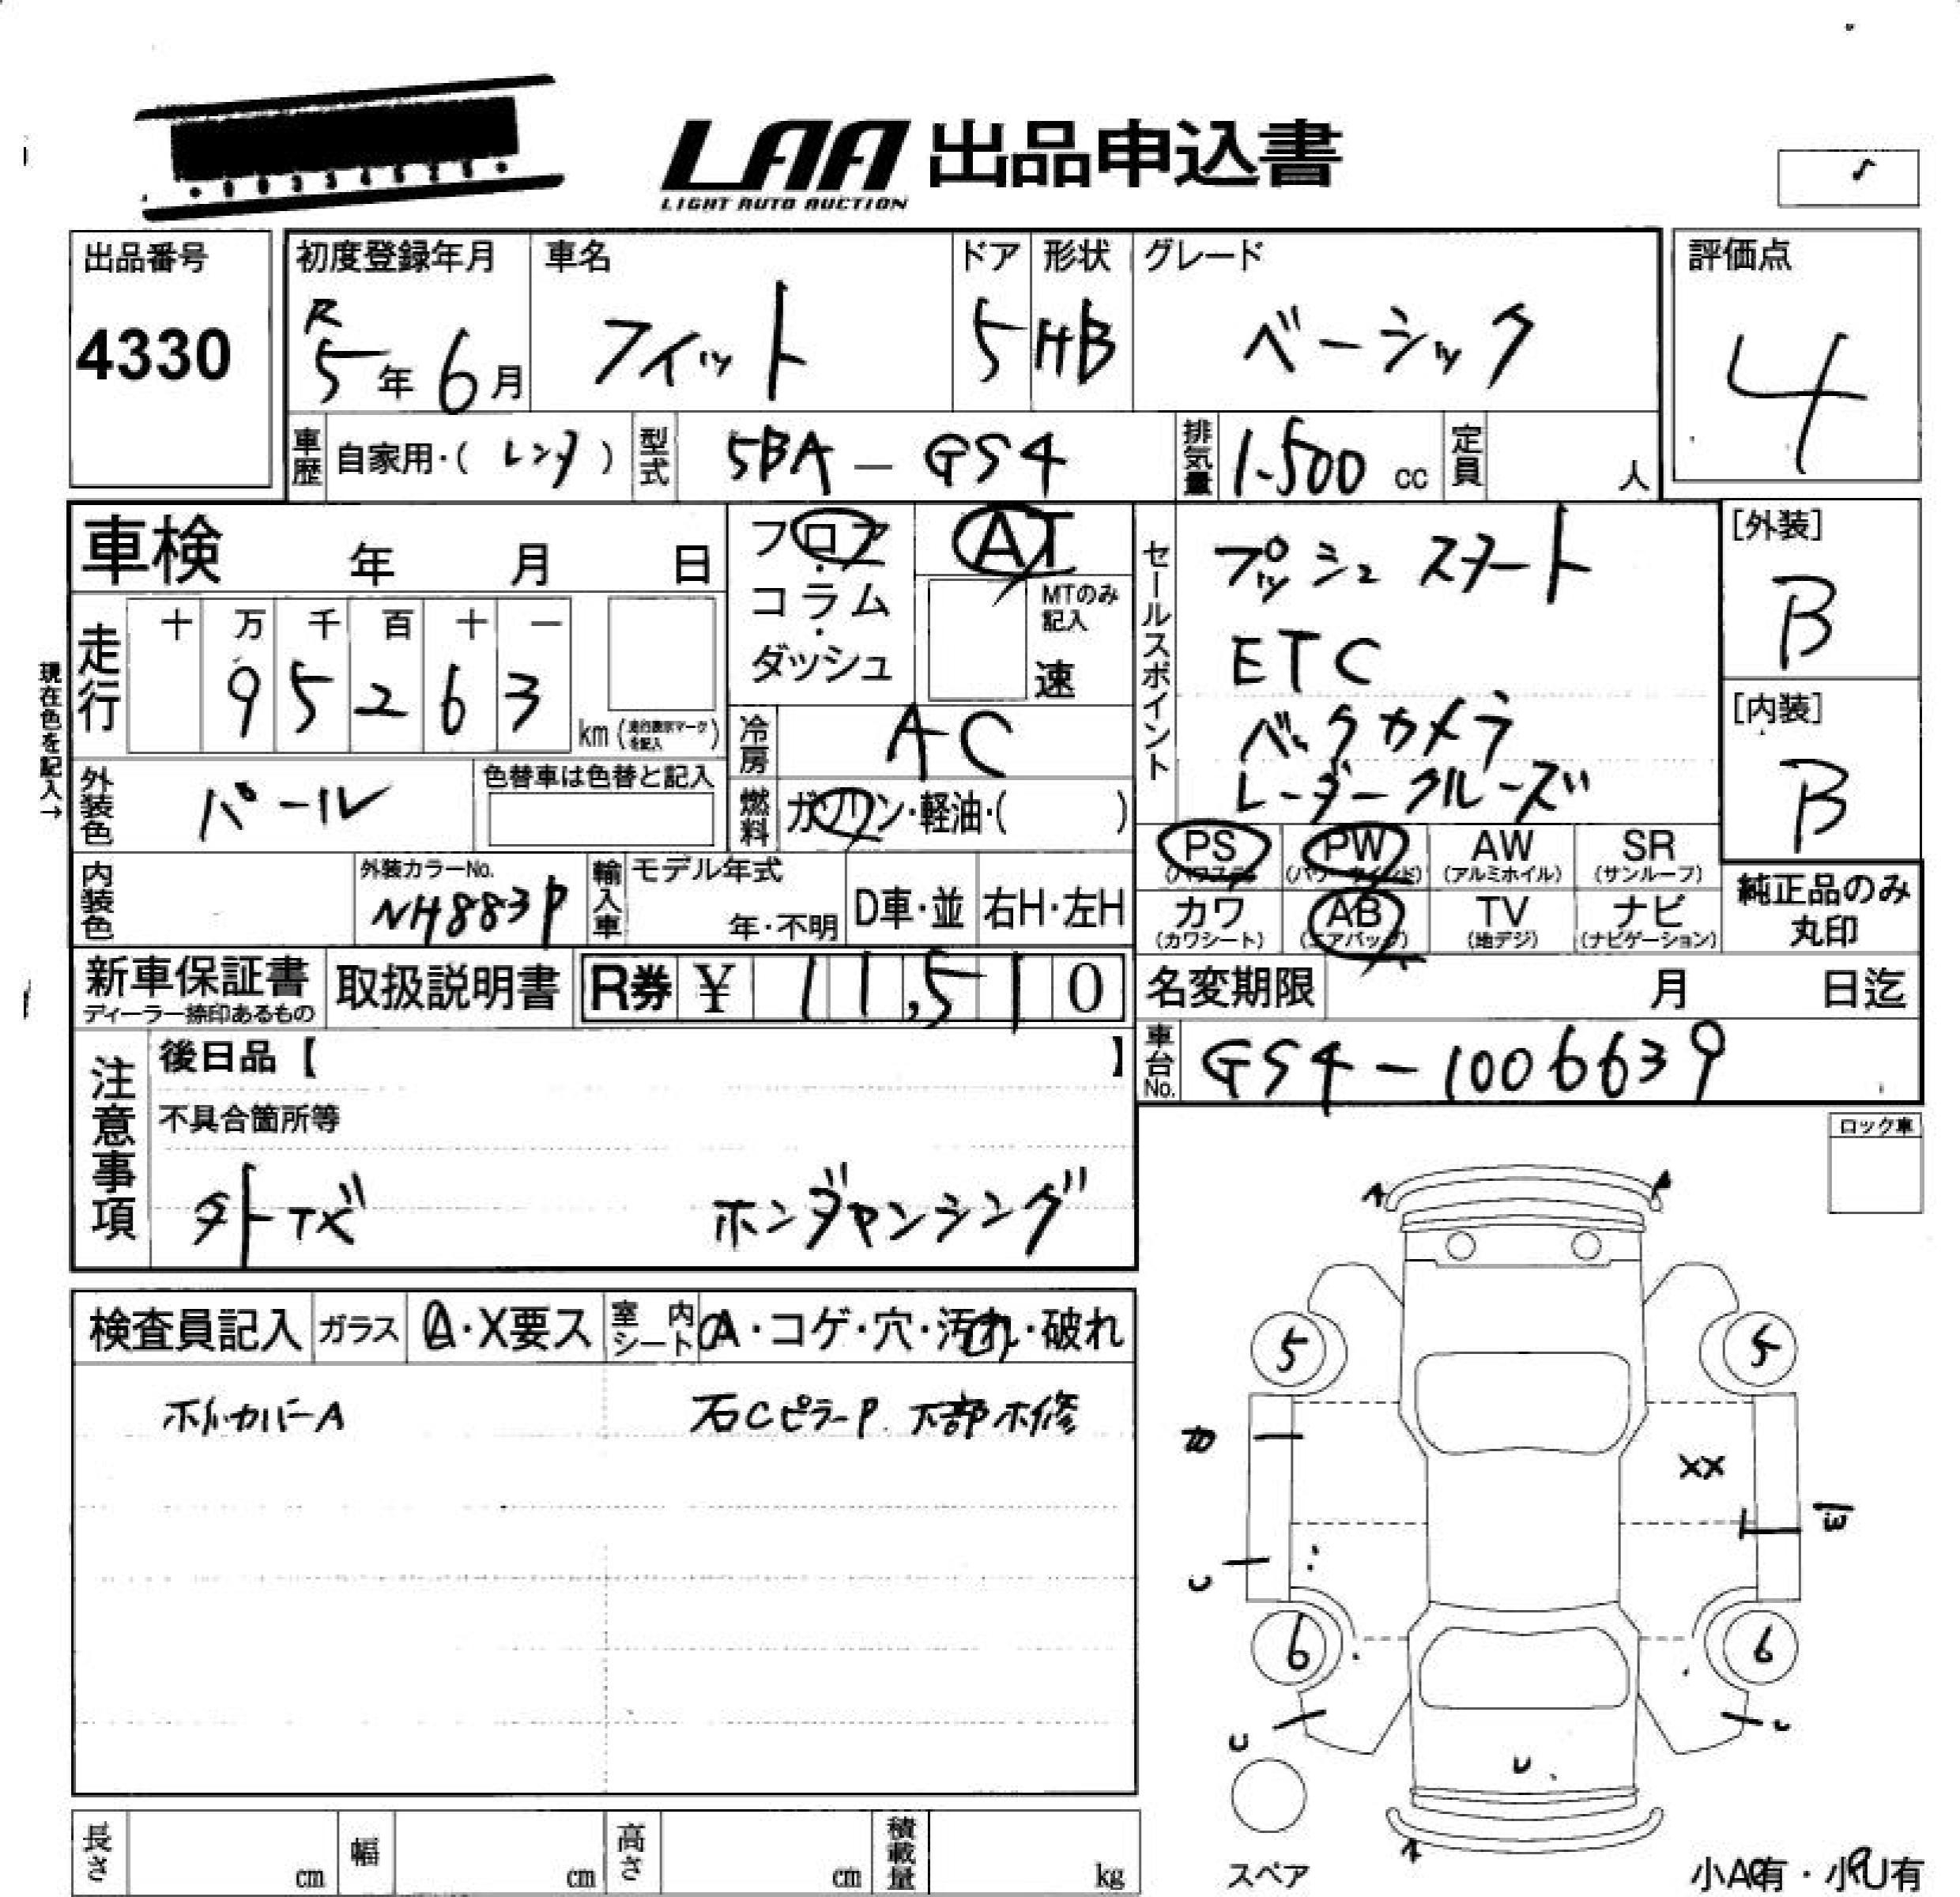 LAA 出品申込書
LIGHT AUTO AUCTION
出品番号
4330
初度登録年月
R
5年 6月
車名
フィット
ドア
5
形状
HB
グレード
ベーシック
評価点
4
車歴 自家用・( レンタ )
型式 5BA-GS4
排気量 1.500 cc
定員 人
車検 年 月 日
フロア
・
コラム
・
ダッシュ
AT
MTのみ
記入
速
セールスポイント
プッシュスタート
ETC
バックカメラ
レーダークルーズ
[外装]
B
[内装]
B
走行 十 万 千 百 十 一
9 5 2 6 3
km
現在色を記入→
冷房 AC
外装色 パール
色替車は色替と記入
燃料 ガソリン・軽油・( )
内装色
外装カラーNo.
NH883P
輸入車
モデル年式
年・不明
D車・並
右H・左H
PS
(パワステ)
PW
(パワーウインド)
AW
(アルミホイル)
SR
(サンルーフ)
カワ
(カワシート)
AB
(エアバッグ)
TV
(地デジ)
ナビ
(ナビゲーション)
純正品のみ
丸印
新車保証書
ディーラー捺印あるもの
取扱説明書
R券 ¥ 11,510
名変期限 月 日迄
車台No. GS4-1006639
注意事項
後日品【 】
不具合箇所等
外キズ
ホンダセンシング
ロック車
検査員記入
ガラス
A・X要ス
室内シート
A・コゲ・穴・汚れ・破れ
ホイルカバーA
右CピラーP 下部ホ修
5
5
XX
U
6
6
U
U
U
スペア
小A有・小U有
長さ cm
幅 cm
高さ cm
積載量 kg